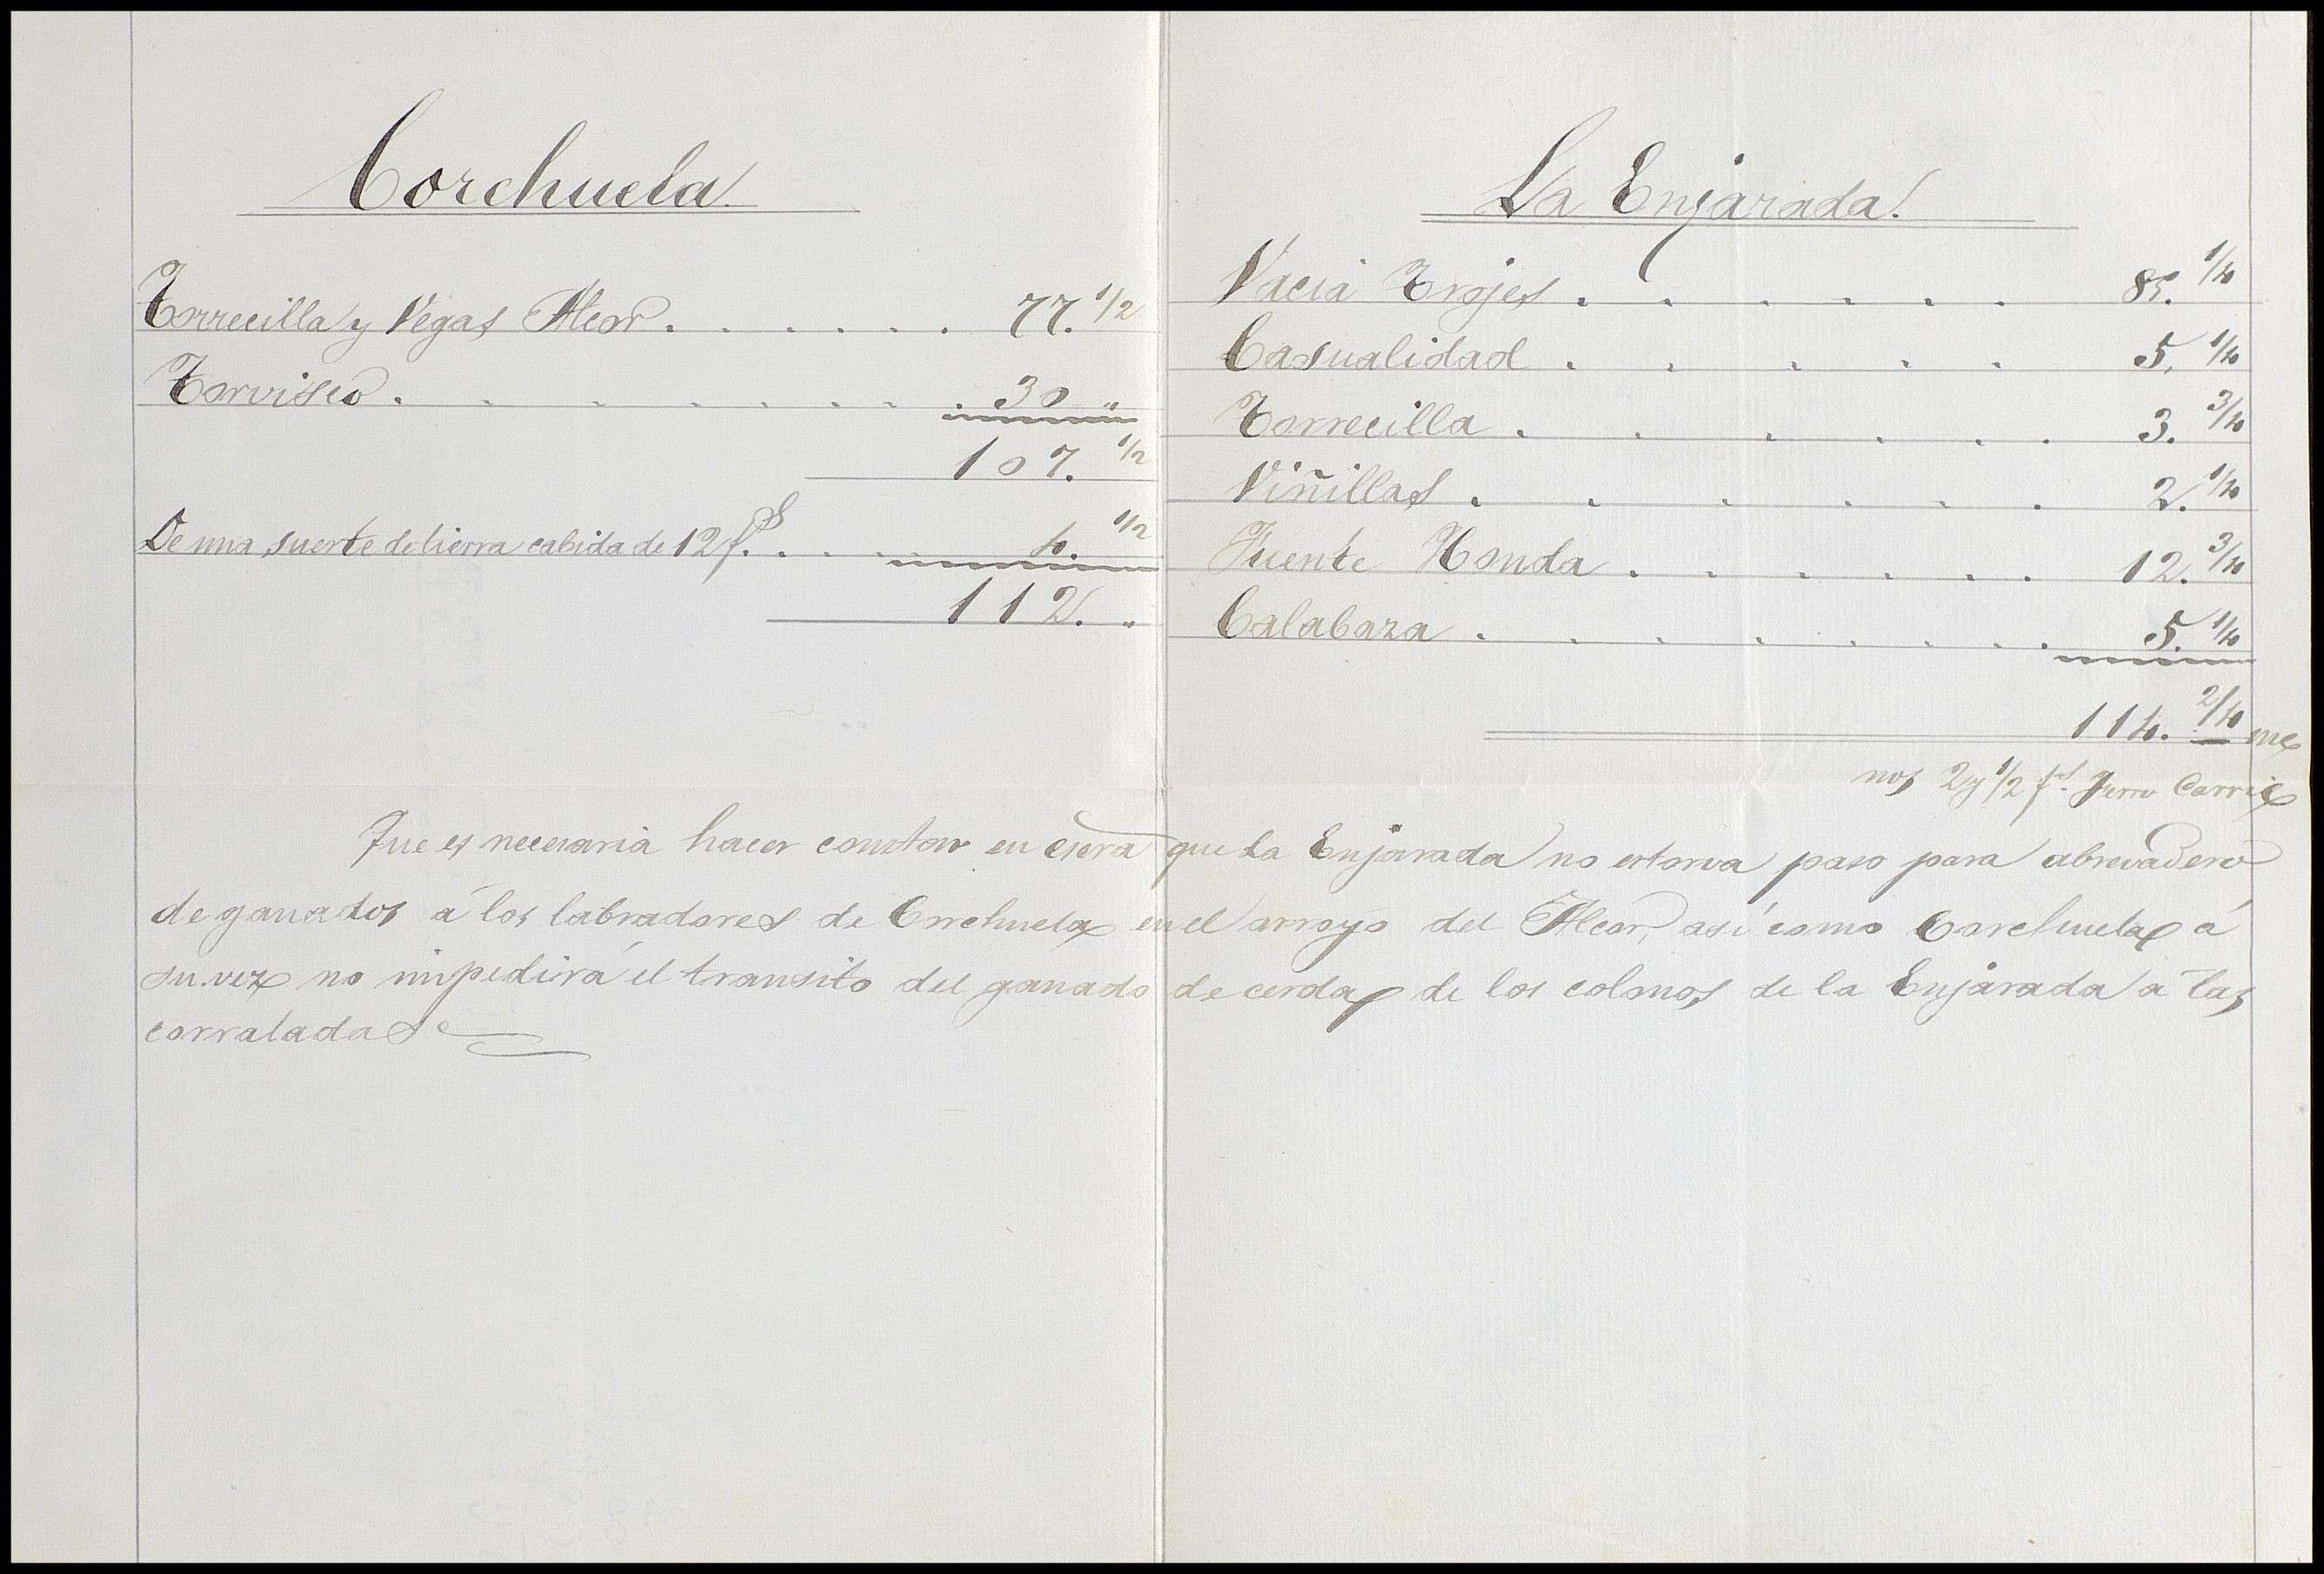 Corchuela
Torrecilla y Vegas Alcor . . . . . . 77. 1/2
Torvisco . . . . . . . . . 30 "
107. 1/2
De una suerte de tierra cabida de 12 f.s . . . . 4. 1/2
112. "
La Enjarada.
Vacia Trojes . . . . . . 85. 1/4
Casualidad . . . . . 5. 1/4
Torrecilla . . . . . . 3. 3/4
Viñillas . . . . . . 2. 1/4
Fuente Honda . . . . . . 12. 3/4
Calabaza . . . . . . . 5. 1/4
114. 2/4 me
nos 2 y 1/2 f.s Ferro Carril
Que es necesaria hacer constar en que La Enjarada no estorva paso para abrevadero
de ganados á los labradores de Corchuela en el arroyo del Alcor, así como Corchuela á
su vez no impedirá el transito del ganado de cerda de los colonos de la Enjarada a las
corraladas